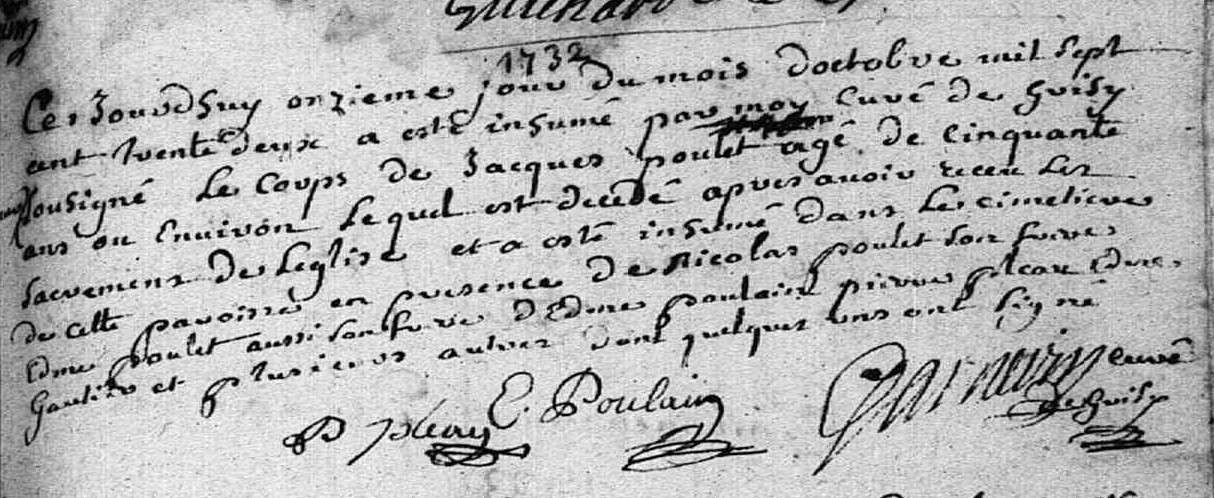 1732
Ce jourdhuy onzieme jour du mois doctobre mil sept
cent trente deux a esté inhumé par moy curé de Guisy
sousigné le corps de Jacques poulet agé de cinquante
ans ou Environ lequel est decedé apres avoir receu les
sacremens de Leglise et a esté inhumé dans le cimetiere
de cette paroisse en presence de Nicolas poulet son frere
Edme poulet aussi son frere d'Edme poulain pierre pleau Edme
Gautier et plusieurs autres dont quelques uns ont signé
P pleau E. Poulain curé
de Guisy